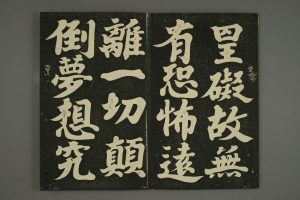 罣礙故無
有恐怖遠
離一切顛
倒夢想究